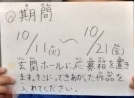 ②期間
10/11(火) 〜 10/21(金)
玄関ホールに応募箱を置き
ます。そこに、できあがった作品を
入れてください。